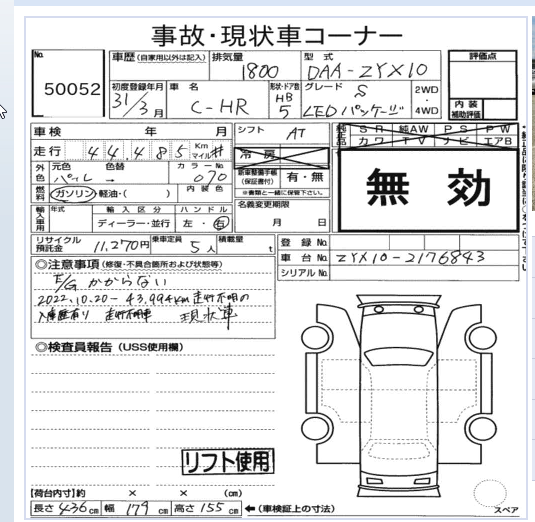 事故・現状車コーナー
No. 50052
車歴 (自家用以外は記入)
排気量 1800
型式 DAA-ZYX10
評価点
初度登録年月 31/3月
車名 C-HR
形状・ドア数 HB 5
グレード S LEDパッケージ
2WD・4WD
内装補助評価
車検 年 月
シフト AT
純正品 SR 純AW PS PW
カワ TV ナビ エアB
走行 44,485 Km マイル #
冷房
外色 元色 パイレ 色替 → カラーNo. 070
新車整備手帳(保証書付) 有・無
※書類と一緒に保管下さい。
無効
燃料 ガソリン・軽油・( ) 内装色
名義変更期限
月 日
輸入車用 年式 輸入区分 ハンドル
ディーラー・並行 左・右
リサイクル預託金 11,270円 乗車定員 5人 積載量 t
登録No.
車台No. ZYX10-2176843
シリアルNo.
◎注意事項 (修復・不具合箇所および状態等)
E/G かからない
2022.10.20- 43,994km 走行不明の
入庫歴有り 走行不明車 現状車
◎検査員報告 (USS使用欄)
リフト使用
【荷台内寸】約 × × (cm)
長さ 436 cm 幅 179 cm 高さ 155 cm ←(車検証上の寸法)
スペア